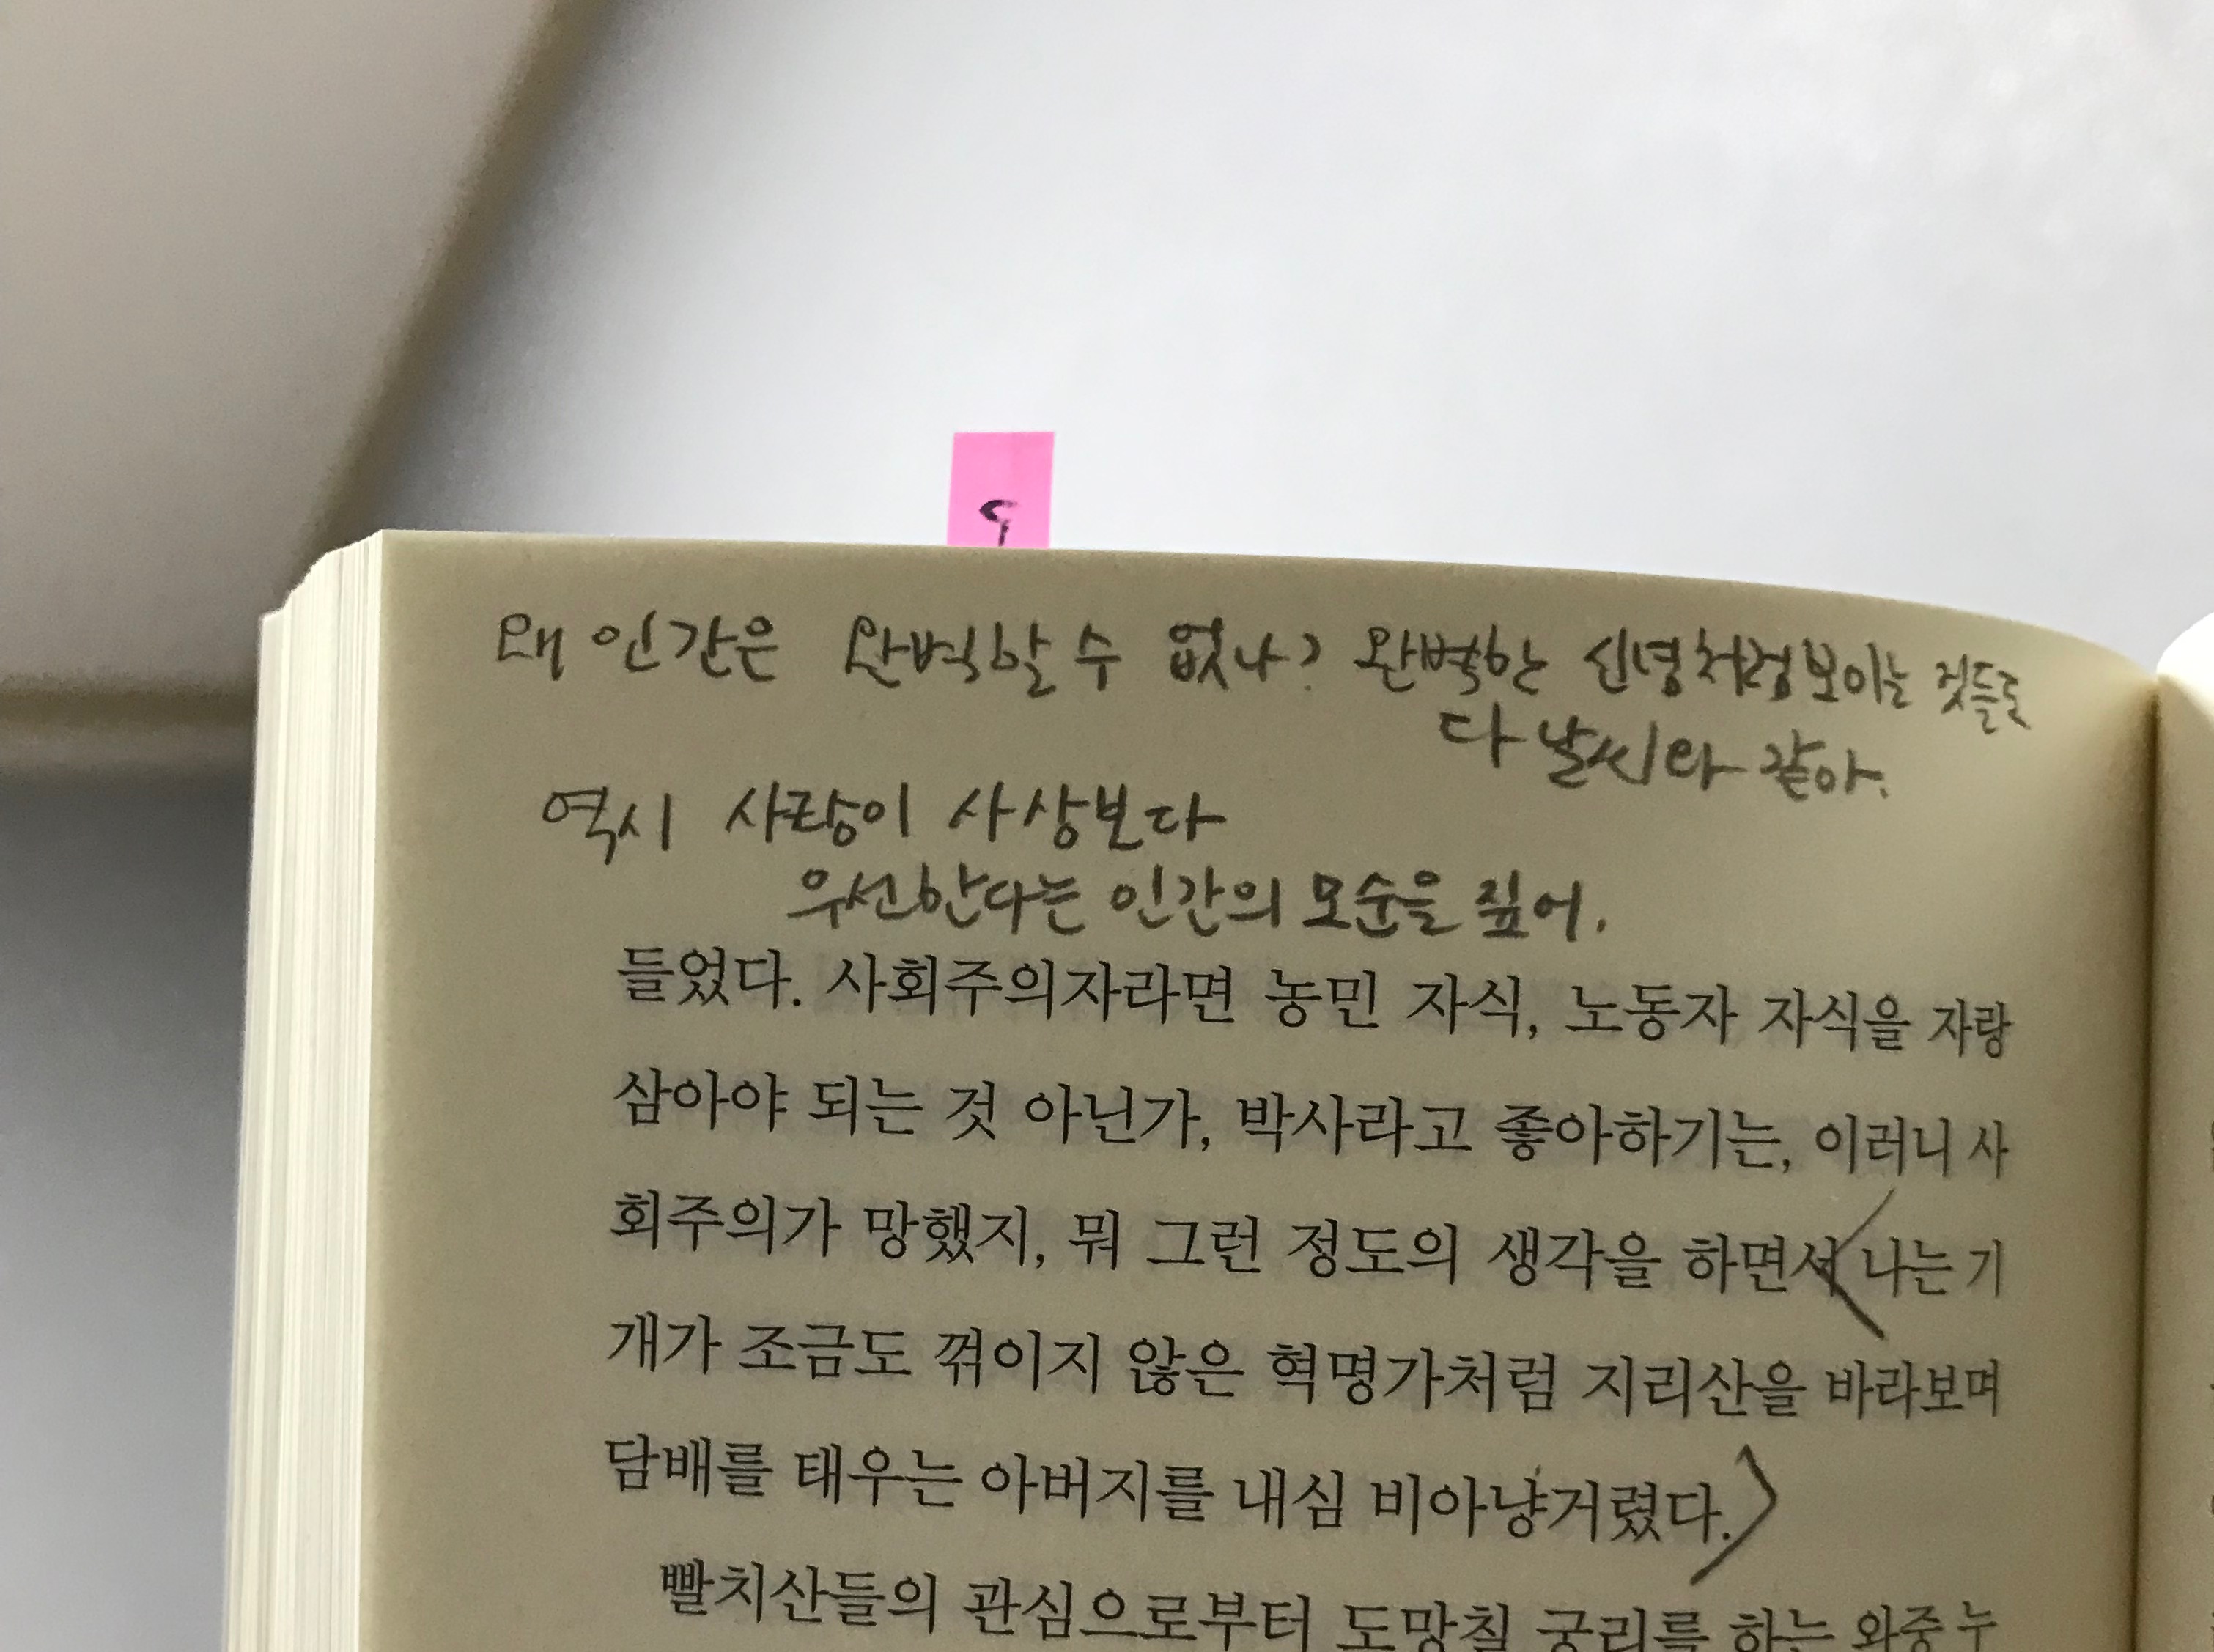 왜 인간은 완벽할 수 없나? 완벽한 신녕처럼 보이는 것들도
다 날씨와 같아.
역시 사랑이 사상보다
우선한다는 인간의 모순을 짚어.
들었다. 사회주의자라면 농민 자식, 노동자 자식을 자랑
삼아야 되는 것 아닌가, 박사라고 좋아하기는, 이러니 사
회주의가 망했지, 뭐 그런 정도의 생각을 하면서 나는 기
개가 조금도 꺾이지 않은 혁명가처럼 지리산을 바라보며
담배를 태우는 아버지를 내심 비아냥거렸다.
빨치산들의 관심으로부터 도망칠 궁리를 하는 와중 누